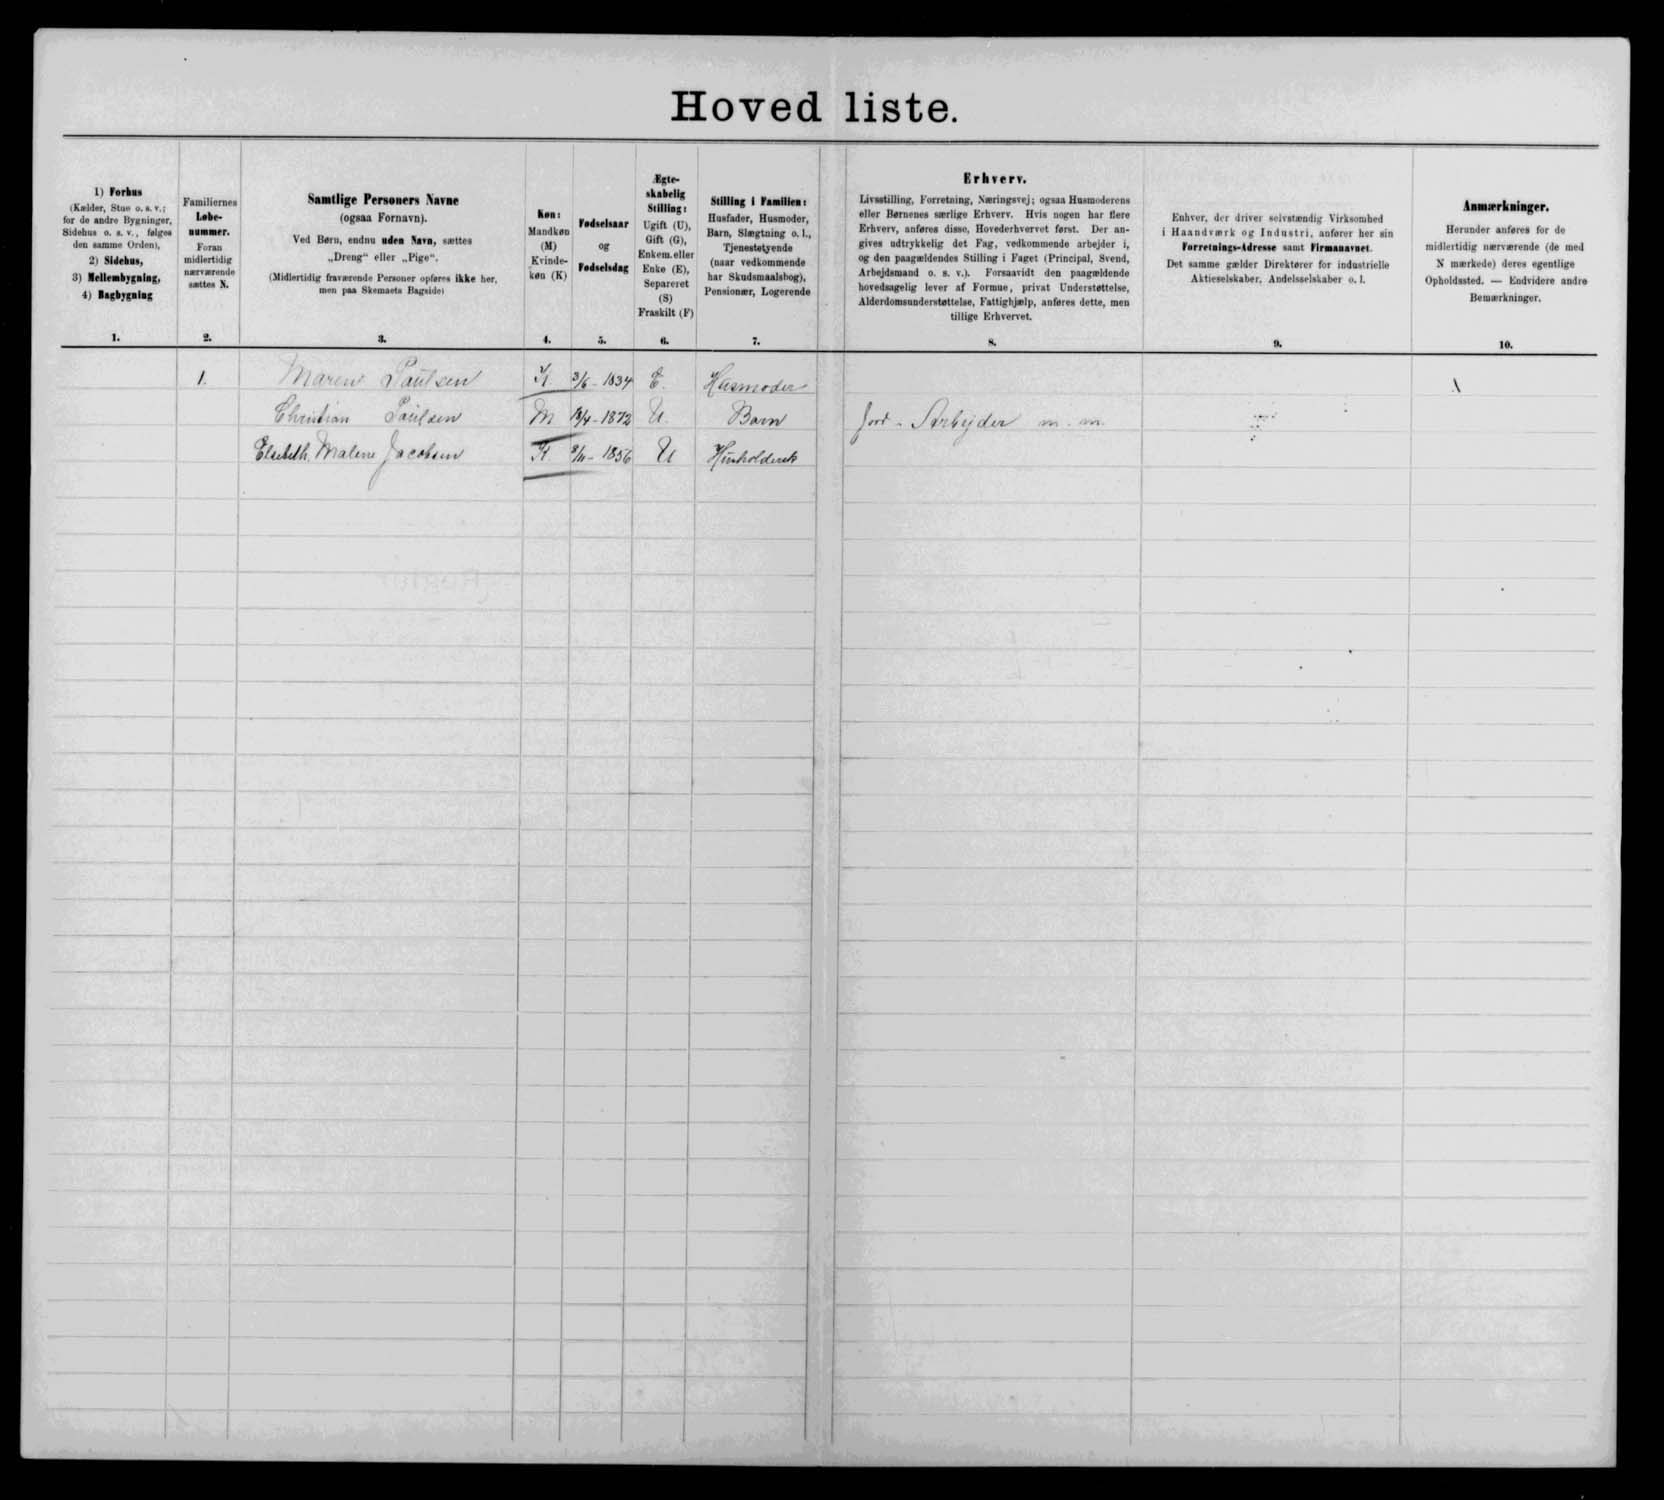 Hoved liste.
1) Forhus
(Kælder, Stue o. s. v.;
for de andre Bygninger,
Sidehus o. s. v., følges
den samme Orden),
2) Sidehus,
3) Mellembygning,
4) Bagbygning
1.
Familiernes
Løbe-
nummer.
Foran
midlertidig
nærværende
sættes N.
2.
Samtlige Personers Navne
(ogsaa Fornavn).
Ved Børn, endnu uden Navn, sættes
„Dreng“ eller „Pige“.
(Midlertidig fraværende Personer opføres ikke her,
men paa Skemaets Bagside)
3.
Køn:
Mandkøn
(M)
Kvinde-
køn (K)
4.
Fødselsaar
og
Fødselsdag
5.
Ægte-
skabelig
Stilling:
Ugift (U),
Gift (G),
Enkem. eller
Enke (E),
Separeret
(S)
Fraskilt (F)
6.
Stilling i Familien:
Husfader, Husmoder,
Barn, Slægtning o. l.,
Tjenestetyende
(naar vedkommende
har Skudsmaalsbog),
Pensionær, Logerende
7.
Erhverv.
Livsstilling, Forretning, Næringsvej; ogsaa Husmoderens
eller Børnenes særlige Erhverv. Hvis nogen har flere
Erhverv, anføres disse, Hovederhvervet først. Der an-
gives udtrykkelig det Fag, vedkommende arbejder i,
og den paagældendes Stilling i Faget (Principal, Svend,
Arbejdsmand o. s. v.). Forsaavidt den paagældende
hovedsagelig lever af Formue, privat Understøttelse,
Alderdomsunderstøttelse, Fattighjælp, anføres dette, men
tillige Erhvervet.
8.
Enhver, der driver selvstændig Virksomhed
i Haandværk og Industri, anfører her sin
Forretnings-Adresse samt Firmanavnet.
Det samme gælder Direktører for industrielle
Aktieselskaber, Andelsselskaber o. l.
9.
Anmærkninger.
Herunder anføres for de
midlertidig nærværende (de med
N mærkede) deres egentlige
Opholdssted. — Endvidere andre
Bemærkninger.
10.
1. Maren Paulsen K 3/6 - 1834 E. Husmoder
Christian Paulsen M /4 - 1872 U. Barn Jord - Arbejder m. m.
Elsebeth Malene Jacobsen K /11 - 1856 U